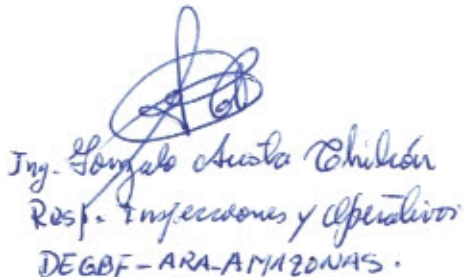 Ing. Gonzalo Acosta Chilcón
Resp. Inspecciones y Operativos
DEGBF-ARA-AMAZONAS.